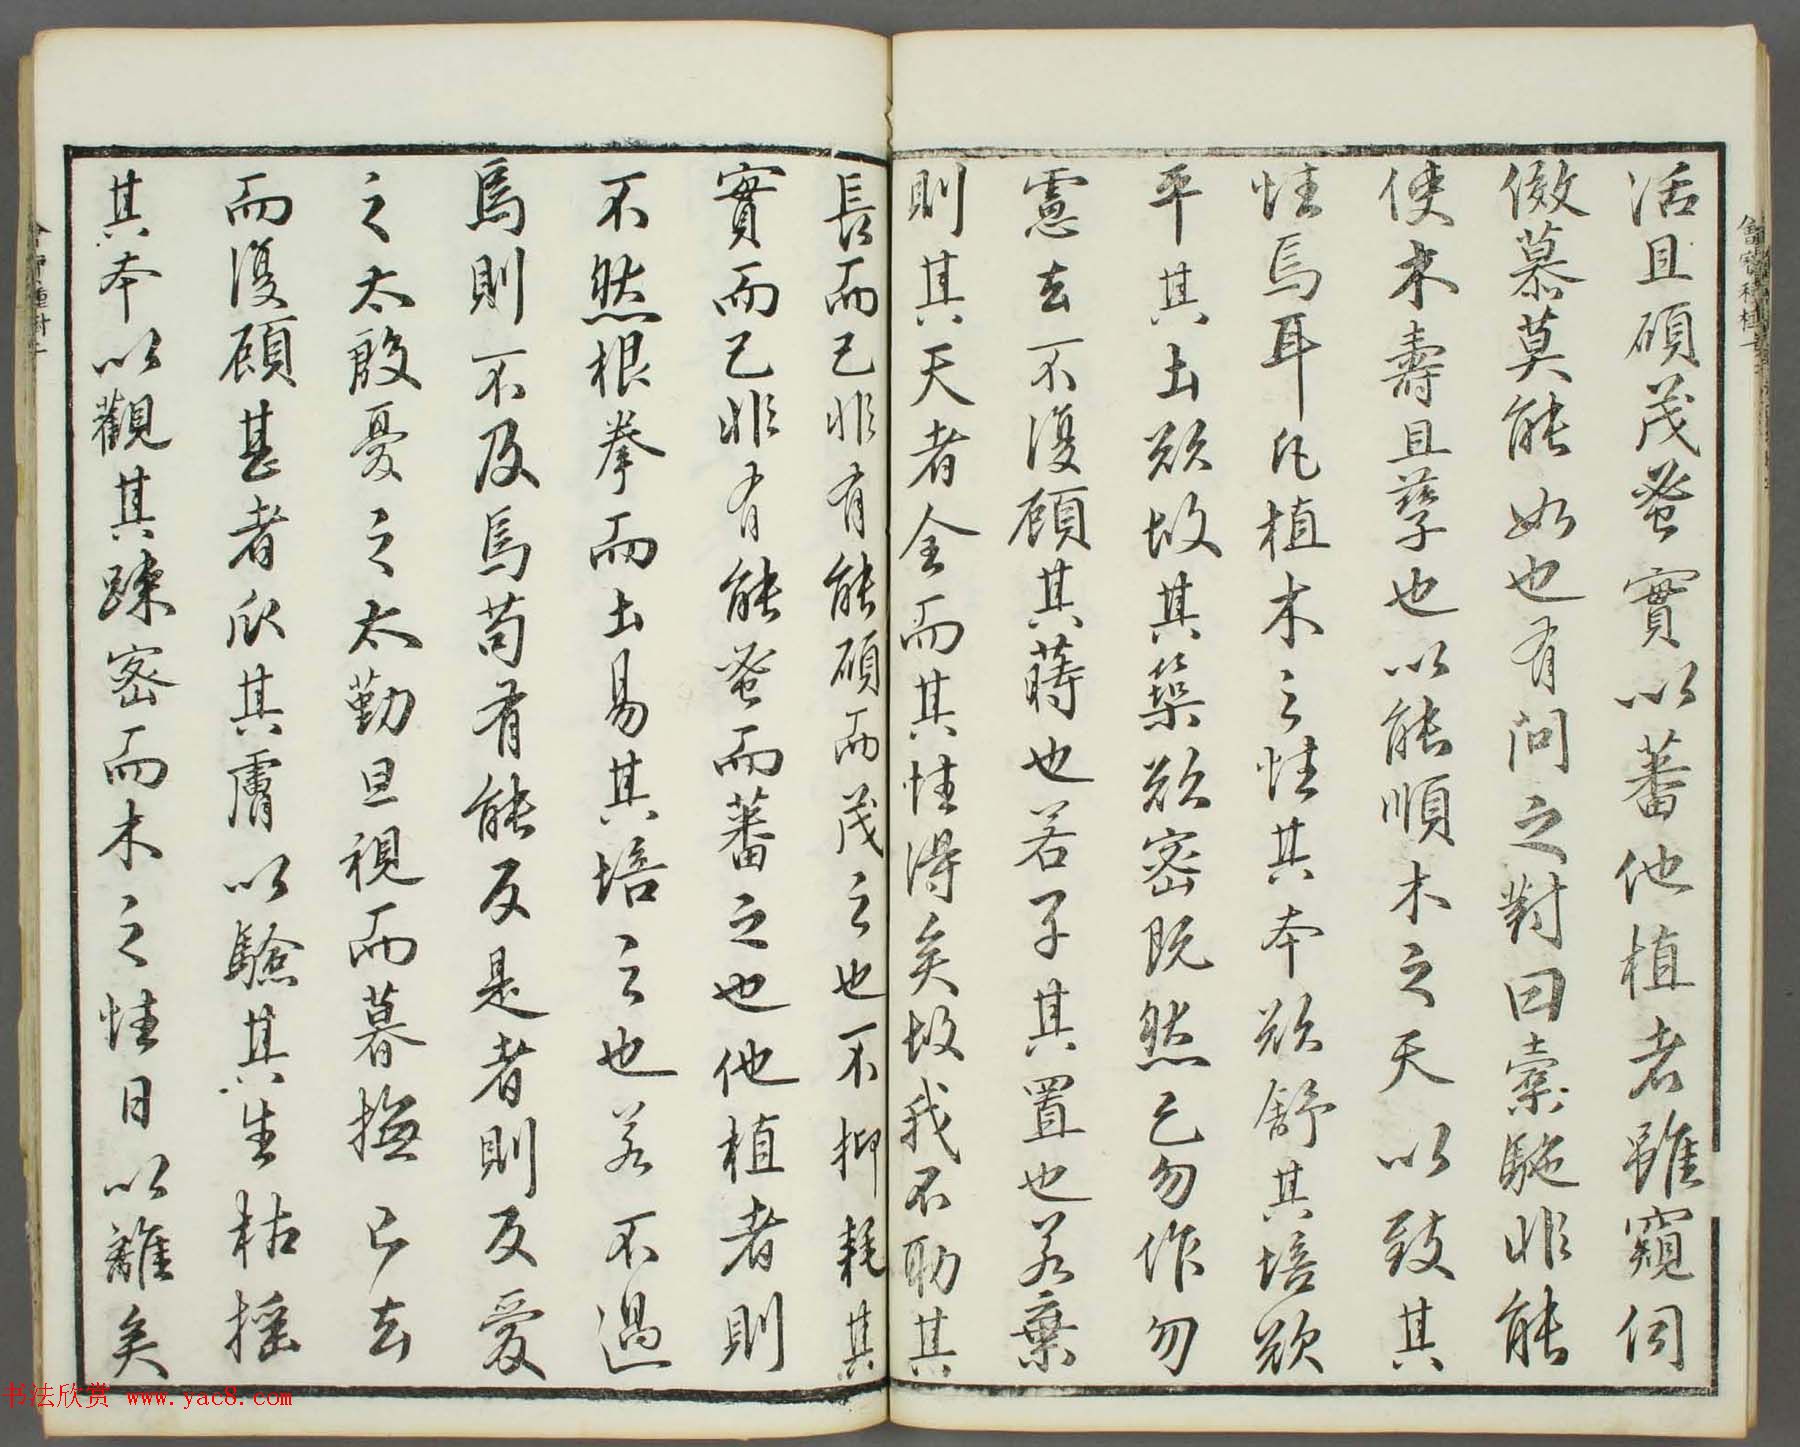 活且碩茂蚤實以蕃他植者雖窺伺
傚慕莫能如也有问之對曰橐駞非能
使木壽且孳也以能順木之天以致其
性焉耳凡植木之性其本欲舒其培欲
平其土欲故其築欲密既然已勿作勿
慮去不復顧其蒔也若子其置也若棄
則其天者全而其性得矣故我不助其
長而已非有能碩而茂之也不抑耗其
實而已非有能蚤而蕃之也他植者則
不然根拳而土易其培之也若不過
焉則不及焉苟有能反是者則又愛
之太殷憂之太勤旦視而暮撫已去
而復顧甚者爪其膚以驗其生枯搖
其本以觀其踈密而木之性日以離矣
书法欣赏 www.yac8.com